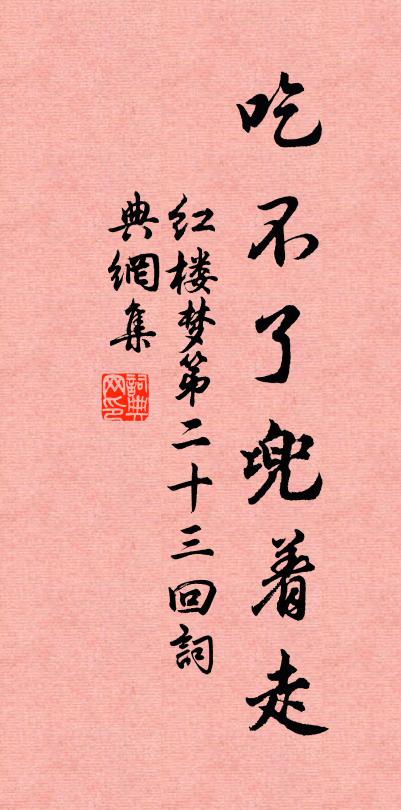 吃不了兜着走
红楼梦第二十三回詞
典網集
詞典
网印